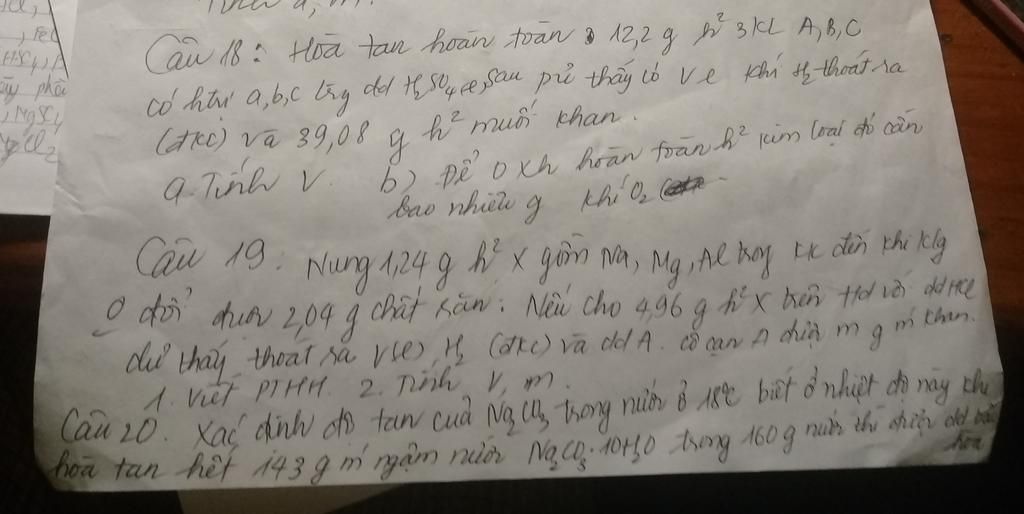 Cl,
, Fe
HSO4, A
ãy phâ
, MgSO,
gCl2
Câu 18: Hoà tan hoàn toàn 12,2 g h² 3 KL A, B, C
có htrị a, b, c trg dd H2SO4 sau pư thấy có V l khí H2 thoát ra
(đkc) và 39,08 g h² muối khan.
a. Tính V. b) Để oxh hoàn toàn h² kim loại đó cần
bao nhiêu g khí O2
Câu 19: Nung 1,24 g h² X gồm Na, Mg, Al trog kk đến khi klg
0 đổi được 2,04 g chất rắn. Nếu cho 4,96 g h² X trên td với dd HCl
dư thấy thoát ra V(l) H2 (đkc) và dd A. cô cạn A được m g m' khan.
1. Viết PTHH. 2. Tính V, m.
Câu 20. Xác định độ tan của Na2CO3 trong nước ở 18°C biết ở nhiệt độ này khi
hoà tan hết 143 g m' ngậm nước Na2CO3.10H2O trong 160 g nước thì được dd bão
hoà